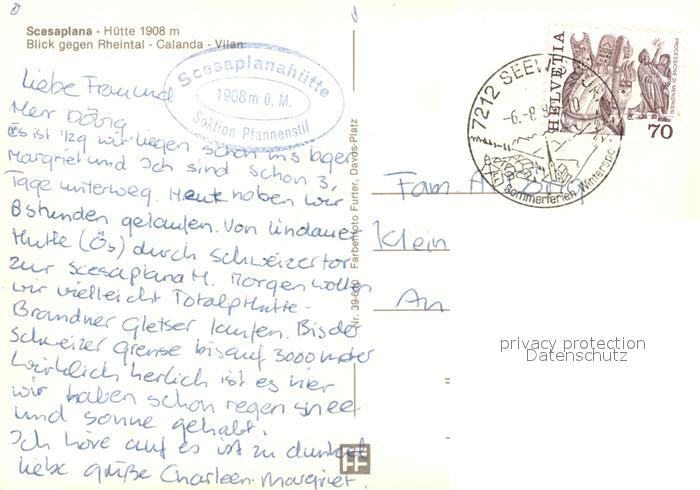 Scesaplana - Hütte 1908 m
Blick gegen Rheintal - Calanda - Vilan
Scesaplanahütte
1908 m ü. M.
Sektion Pfannenstil
Liebe Frau und
Herr Dörig
Es ist ½9 wir liegen schon ins lager
Margriet und Ich sind schon 3
Tage unterweg. Heute haben wir
8 stunden gelaufen. Von Lindauer
Hutte (Ös) durch Schweizertor
zur Scesaplana H. Morgen wollen
wir vielleicht Totalp Hutte -
Brandner Gletser laufen. Bis der
Schweizer grense bis auf 3000 meter
Wirklich herlich ist es hier
wir haben schon regen snee
und sonne gehabt.
Ich höre auf es ist zu dunkel
liebe grüße Charleen. Margriet.
Nr. 39-810 Farbenfoto Furter, Davos-Platz
FF
7212 SEEWIS
Sommerferien Wintersp
HELVETIA
PROCESSIONE DI MENDRISIO
70
Fam. A. Dörig
Klein
An
privacy protection
Datenschutz